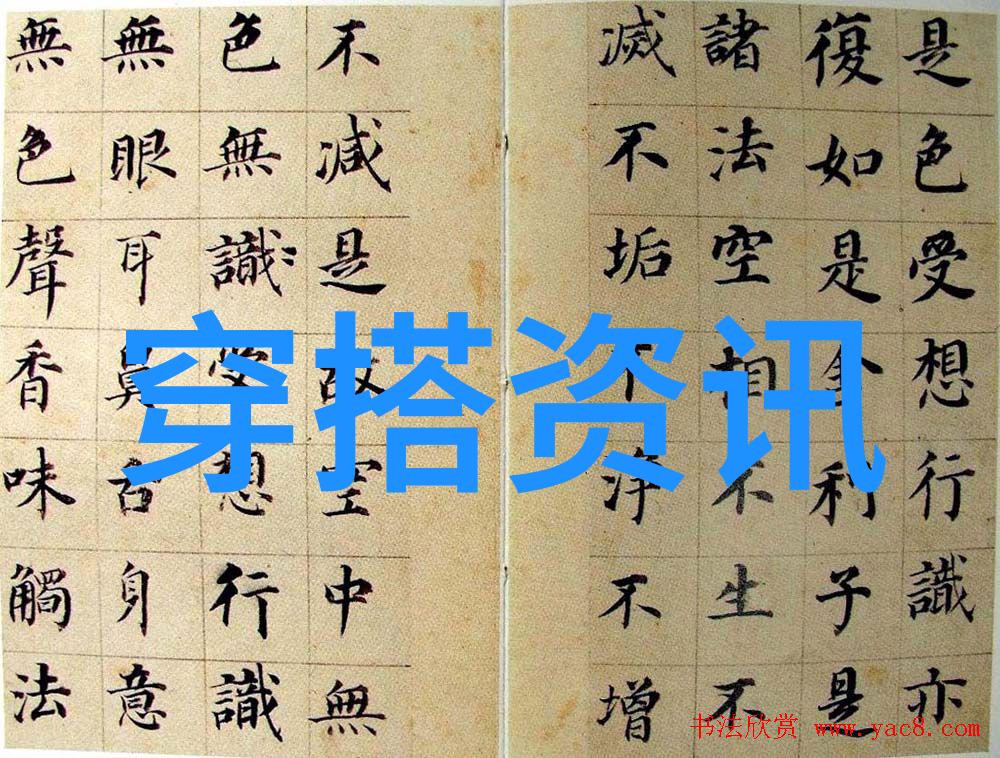 是色受想行識亦
復如是舍利子是
諸法空相不生不
滅不垢不淨不增
不減是故空中無
色無識受想行識
無眼耳鼻舌身意
無色聲香味觸法
穿搭资讯
书法欣赏 www.yac8.com